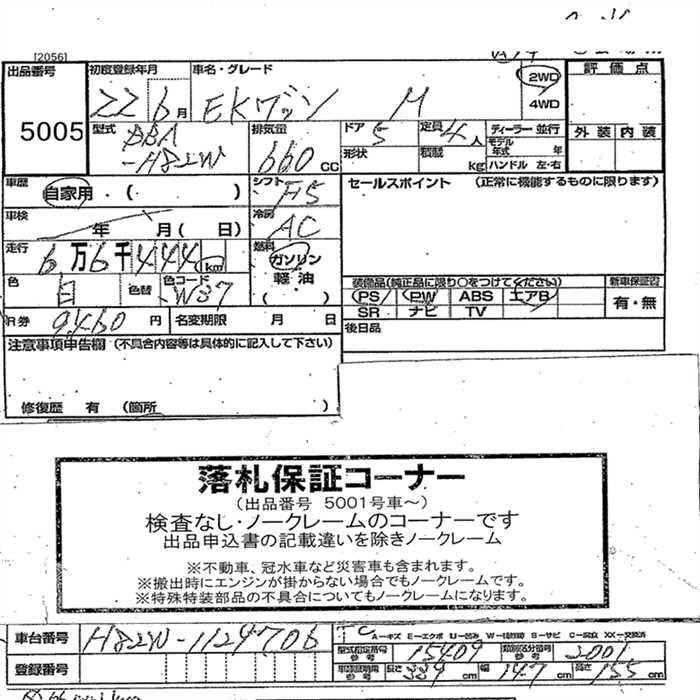 [2056]
出品番号 5005
初度登録年月 22 6月
車名・グレード EKワゴン M
2WD
4WD
評価点
外装 内装
型式 DBA-H82W
排気量 660 CC
ドア 5
定員 4人
形状
積載 kg
ディーラー 並行
モデル年式 年
ハンドル 左・右
車歴 自家用 ・( )
シフト F5
セールスポイント (正常に機能するものに限ります)
車検 年 月( 日)
冷房 AC
走行 6万6千444km
燃料 ガソリン
軽 油
( )
色 白
色替
色コード W37
装備品(純正品に限り〇をつけてください)
新車保証書
PS PW ABS エアB
SR ナビ TV
有・無
R券 9460 円
名変期限 月 日
後日品
注意事項申告欄 (不具合内容等は具体的に記入して下さい)
修復歴 有 (箇所 )
落札保証コーナー
(出品番号 5001号車~)
検査なし・ノークレームのコーナーです
出品申込書の記載違いを除きノークレーム
※不動車、冠水車など災害車も含まれます。
※搬出時にエンジンが掛からない場合でもノークレームです。
※特殊特装部品の不具合についてもノークレームになります。
車台番号 H82W-1124706
A-キズ E-エクボ U-凹み W-波 S-サビ C-腐食 XX-交換済
型式指定番号 参考 15409
類別区分番号 参考 2001
登録番号
車検証明用 参考 長さ 339 cm 幅 147 cm 高さ 155 cm